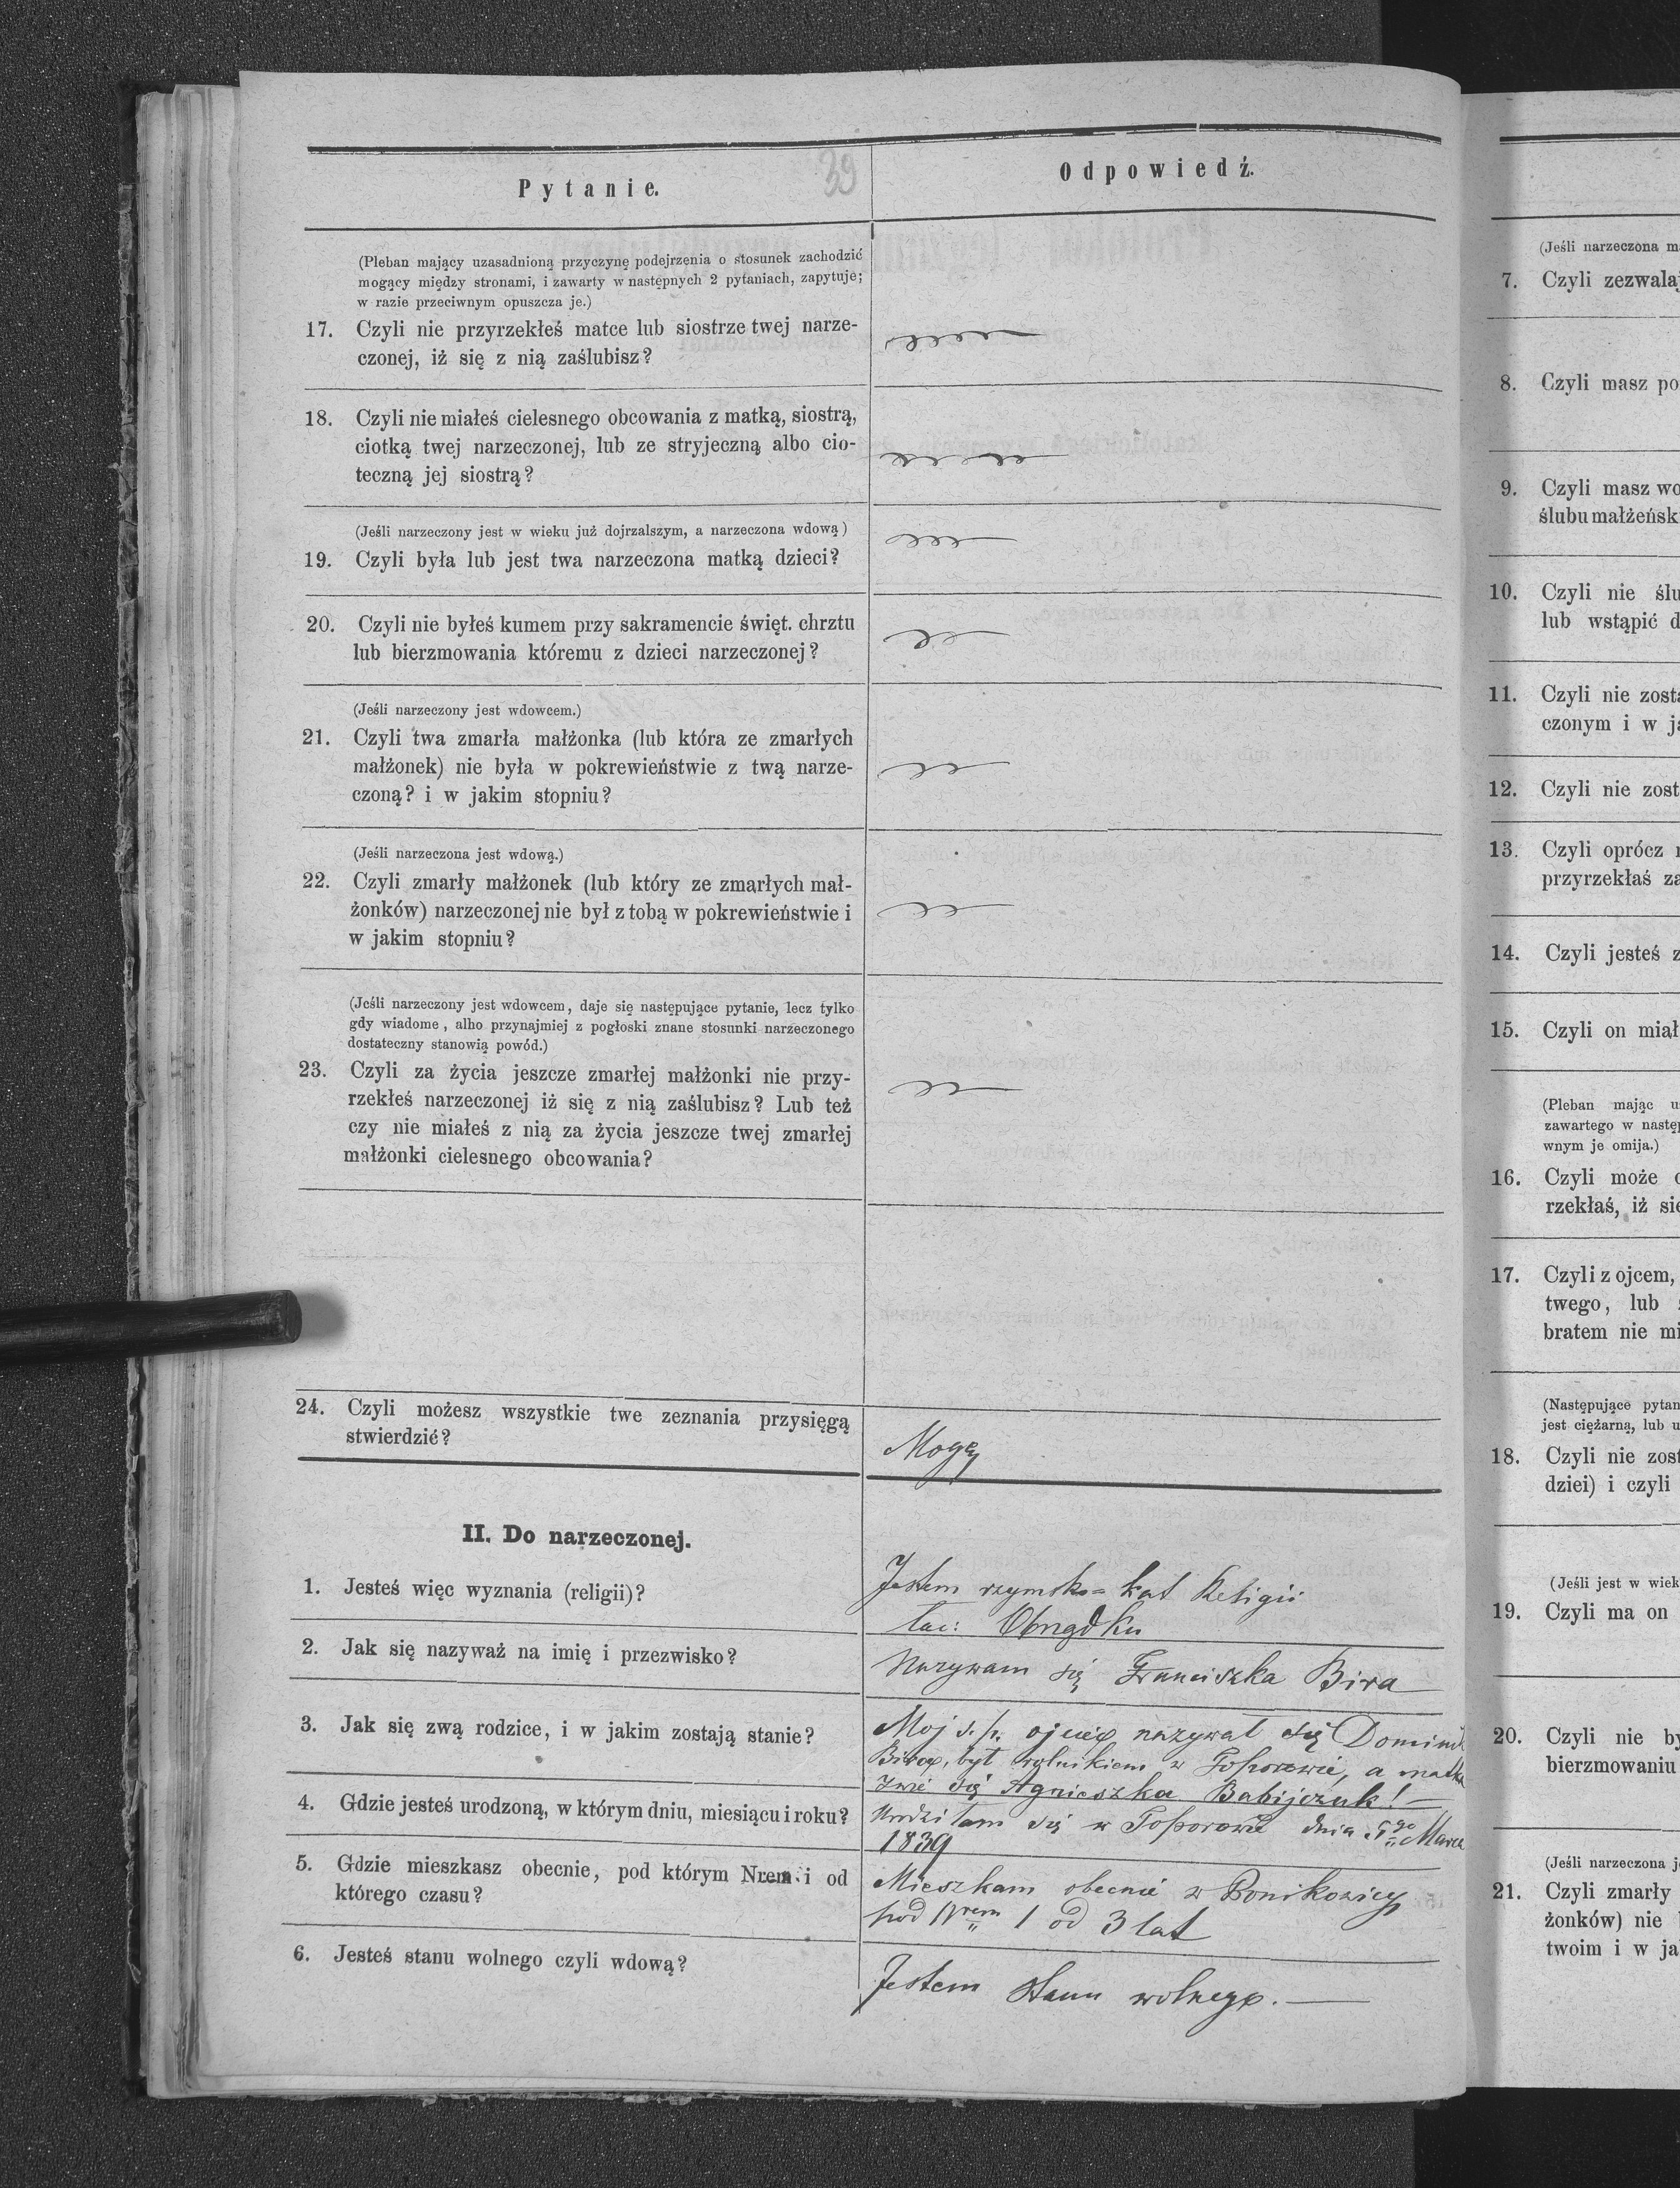 Pytanie.
39
Odpowiedź.
(Pleban mający uzasadnioną przyczynę podejrzenia o stosunek zachodzić
mogący między stronami, i zawarty w następnych 2 pytaniach, zapytuje;
w razie przeciwnym opuszcza je.)
17. Czyli nie przyrzekłeś matce lub siostrze twej narze-
czonej, iż się z nią zaślubisz?
18. Czyli nie miałeś cielesnego obcowania z matką, siostrą,
ciotką twej narzeczonej, lub ze stryjeczną albo cio-
teczną jej siostrą?
(Jeśli narzeczony jest w wieku już dojrzalszym, a narzeczona wdową)
19. Czyli była lub jest twa narzeczona matką dzieci?
20. Czyli nie byłeś kumem przy sakramencie święt. chrztu
lub bierzmowania któremu z dzieci narzeczonej?
(Jeśli narzeczony jest wdowcem.)
21. Czyli twa zmarła małżonka (lub która ze zmarłych
małżonek) nie była w pokrewieństwie z twą narze-
czoną? i w jakim stopniu?
(Jeśli narzeczona jest wdową.)
22. Czyli zmarły małżonek (lub który ze zmarłych mał-
żonków) narzeczonej nie był z tobą w pokrewieństwie i
w jakim stopniu?
(Jeśli narzeczony jest wdowcem, daje się następujące pytanie, lecz tylko
gdy wiadome, albo przynajmiej z pogłoski znane stosunki narzeczonego
dostateczny stanowią powód.)
23. Czyli za życia jeszcze zmarłej małżonki nie przy-
rzekłeś narzeczonej iż się z nią zaślubisz? Lub też
czy nie miałeś z nią za życia jeszcze twej zmarłej
małżonki cielesnego obcowania?
24. Czyli możesz wszystkie twe zeznania przysięgą
stwierdzić?
Mogę
II. Do narzeczonej.
1. Jesteś więc wyznania (religii)?
Jestem rzymsko=kat Religii
łac: Obrządku
2. Jak się nazyważ na imię i przezwisko?
Nazywam się Franciszka Bira
3. Jak się zwą rodzice, i w jakim zostają stanie?
Mój ś. p. ojciec nazywał się Domini
Bira, był rolnikiem w Toporowie, a matka
zwie się Agnieszka Babijczuk! —
4. Gdzie jesteś urodzoną, w którym dniu, miesiącu i roku?
Urodziłam się w Toporowie dnia Marca
1839
5. Gdzie mieszkasz obecnie, pod którym Nrem i od
którego czasu?
Mieszkam obecnie w Ponikowicy
pod Nrem 1 od 3 lat
6. Jesteś stanu wolnego czyli wdową?
Jestem stanu wolnego. —
(Jeśli narzeczona m
7. Czyli zezwalaj
8. Czyli masz po
9. Czyli masz wo
ślubu małżeńsk
10. Czyli nie ślu
lub wstąpić d
11. Czyli nie zosta
czonym i w ja
12. Czyli nie zost
13. Czyli oprócz
przyrzekłaś za
14. Czyli jesteś z
15. Czyli on miał
(Pleban mając u
zawartego w nastę
wnym je omija.)
16. Czyli może
rzekłaś, iż się
17. Czyli z ojcem,
twego, lub
bratem nie mi
(Następujące pytan
jest ciężarną, lub u
18. Czyli nie zost
dziei) i czyli
(Jeśli jest w wiek
19. Czyli ma on
20. Czyli nie by
bierzmowaniu
(Jeśli narzeczona j
21. Czyli zmarły
żonków) nie
twoim i w ja